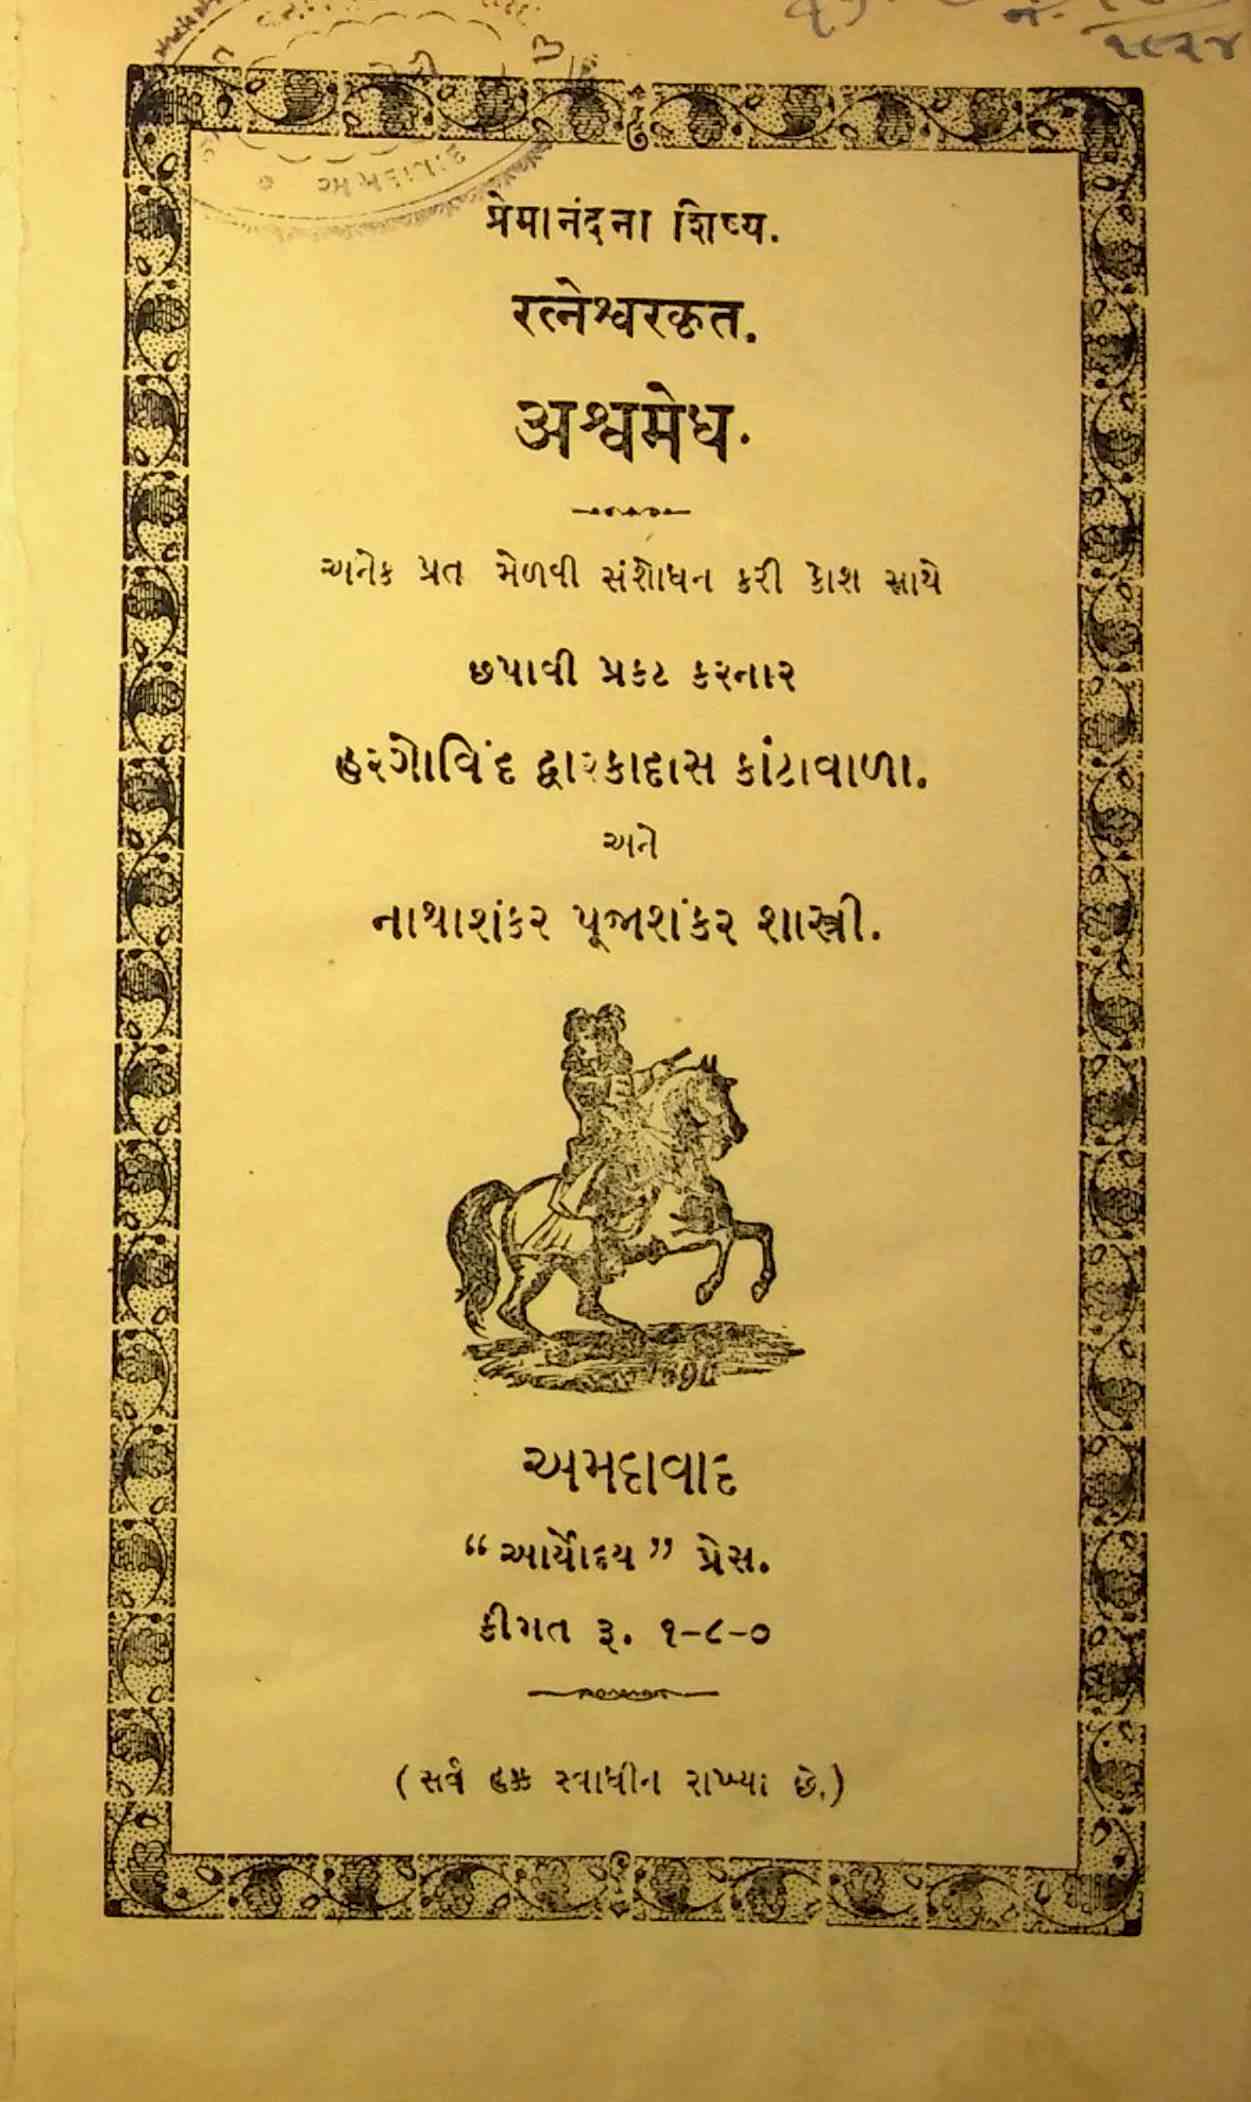 પ્રેમાનંદના શિષ્ય.
रत्नेश्वरकृत.
अश्वमेध.
અનેક પ્રત મેળવી સંશોધન કરી કોશ સાથે
છપાવી પ્રકટ કરનાર
હરગોવિંદ દ્વારકાદાસ કાંટાવાળા.
અને
નાથાશંકર પૂજાશંકર શાસ્ત્રી.
અમદાવાદ
“આર્યોદય” પ્રેસ.
કીમત રૂ. ૧-૮-૦
(સર્વ હક્ક સ્વાધીન રાખ્યા છે.)